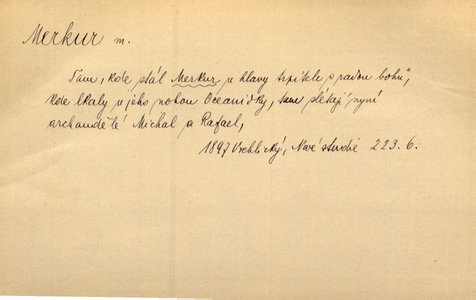 Merkur m.
Tam, kde stál Merkur u hlavy trpitele s radou bohů,
kde lkaly u jeho nohou Oceanidky, tam slétají nyní
archandělé Michal a Rafael,
1897 Vrchlický, Nové studie 223.6.